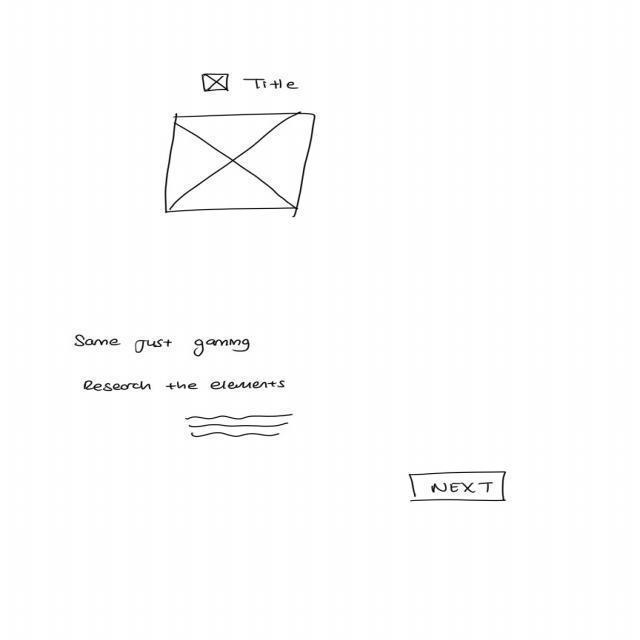 Title
Same just gaming
Research the elements
NEXT